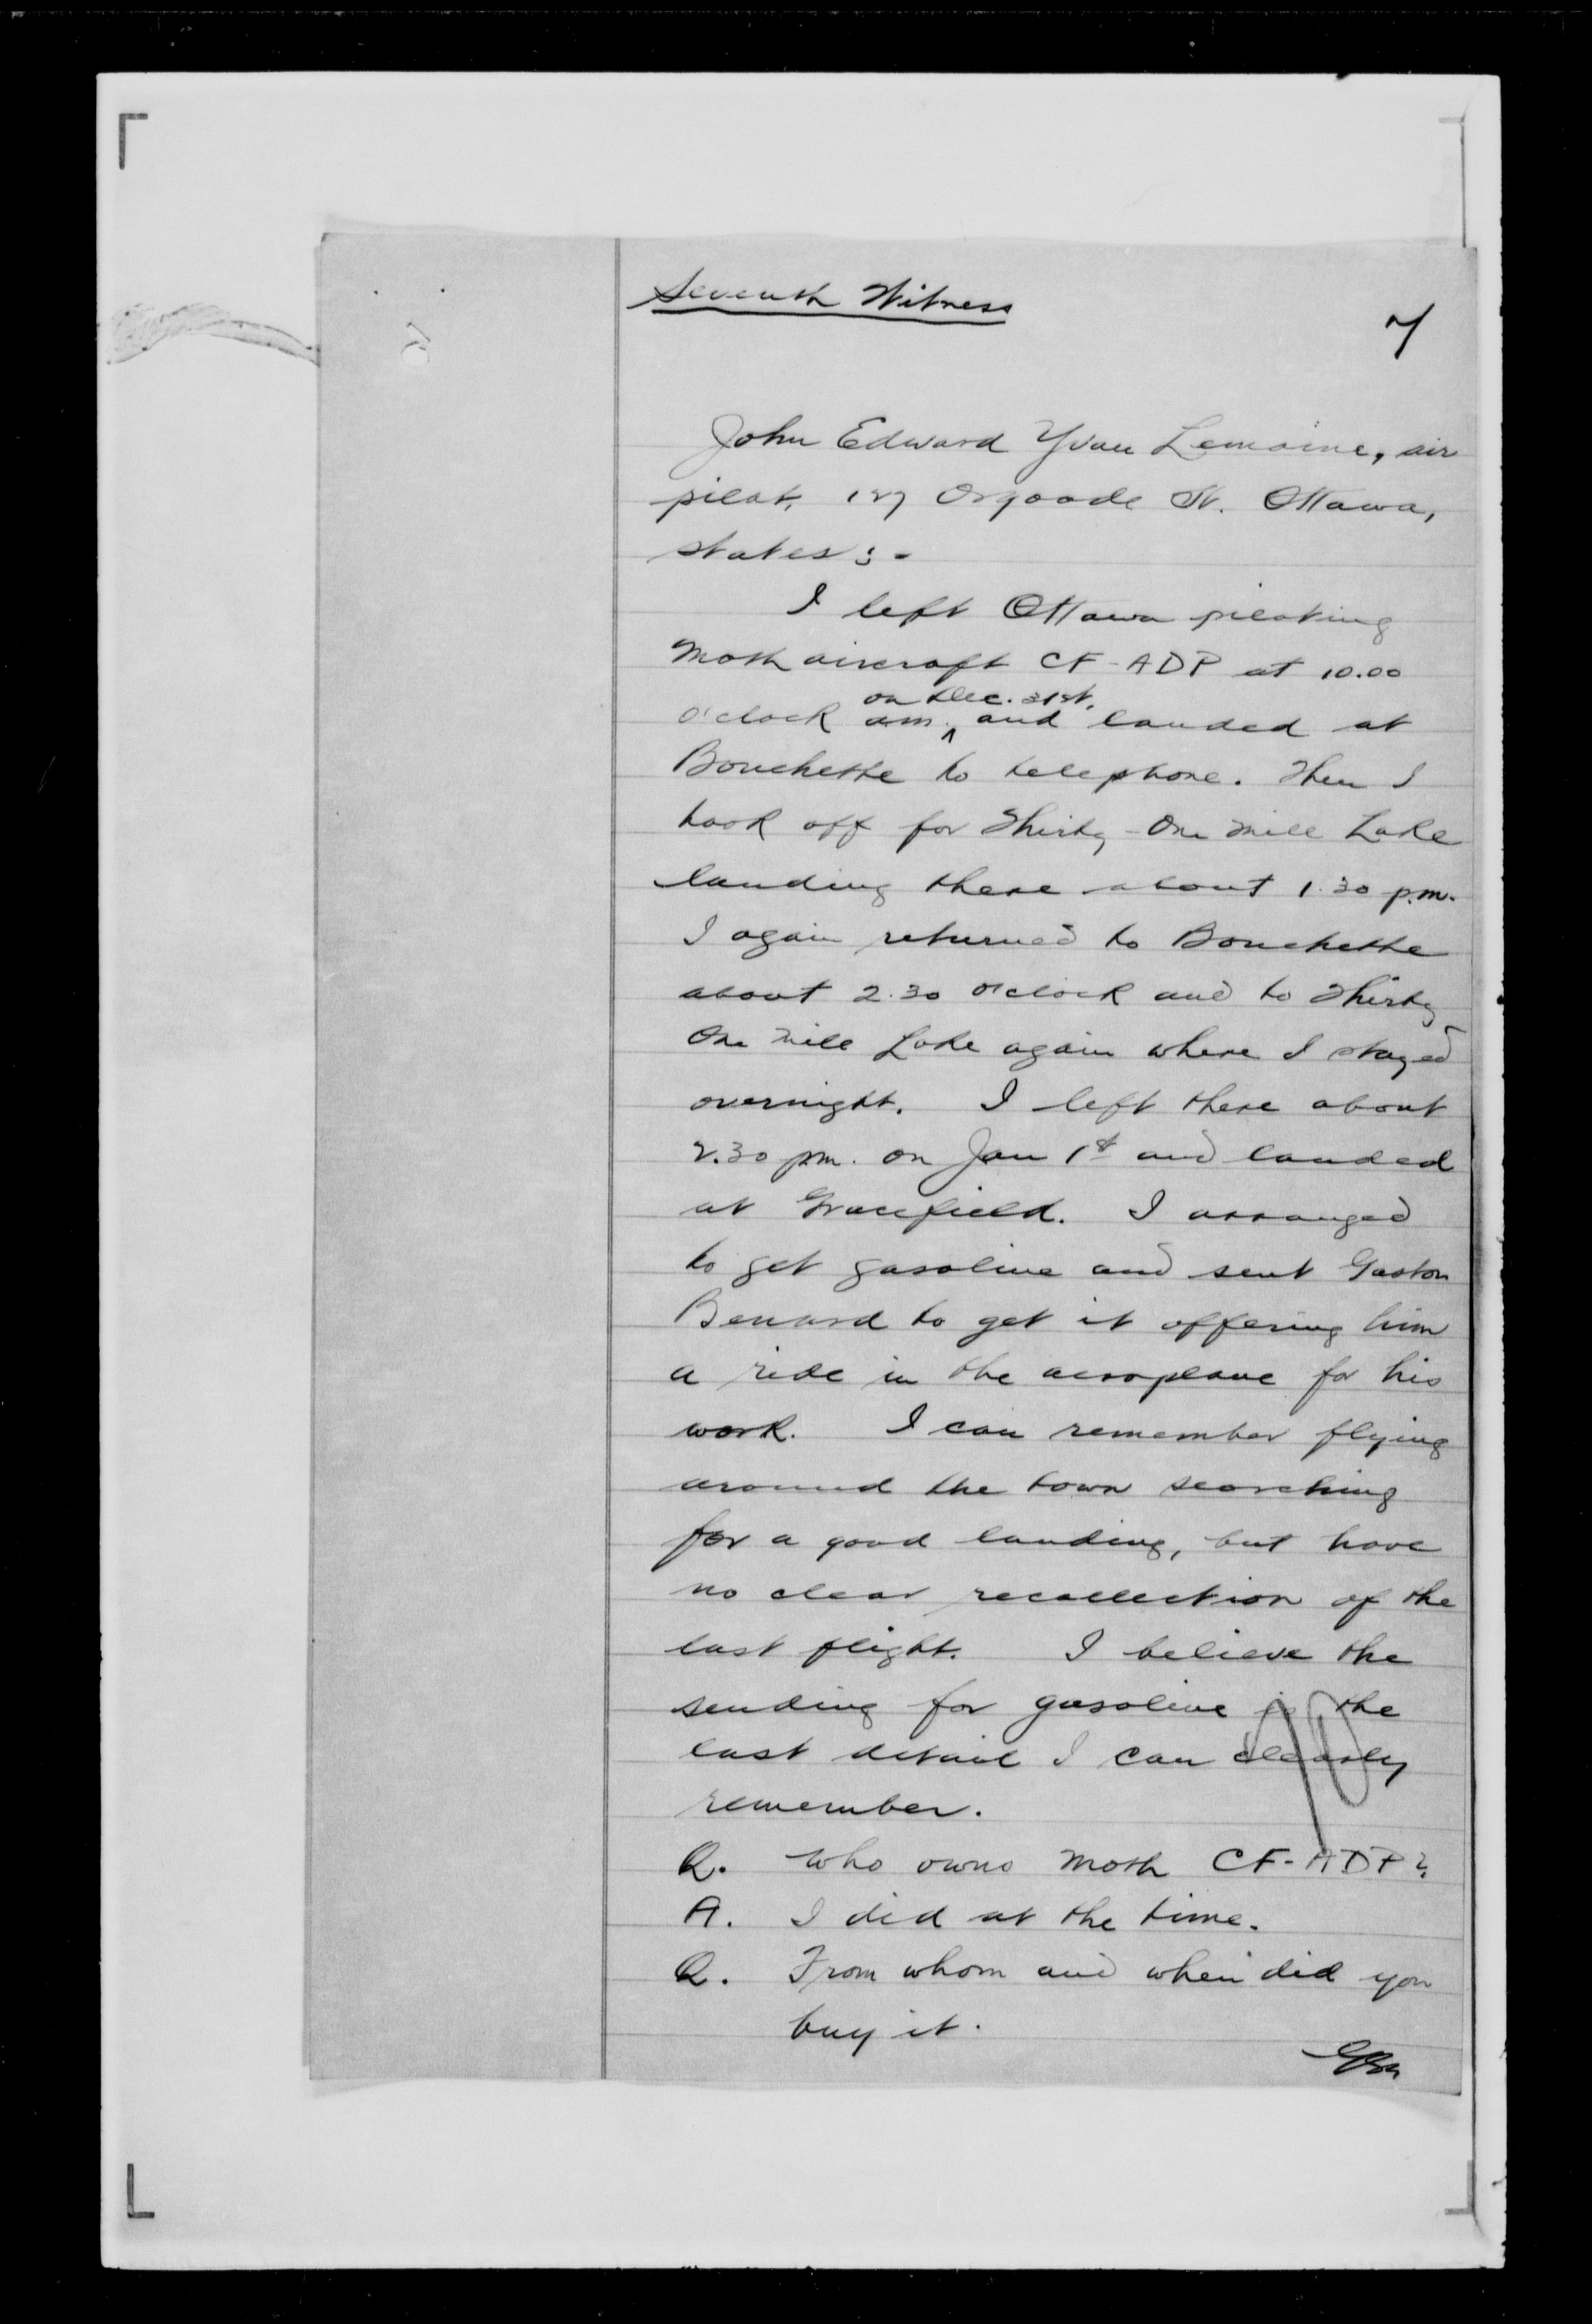 Seventh Witness
7
John Edward Yvan Lemoine, air
pilot, 127 Osgoode St. Ottawa,
states:-
I left Ottawa piloting
Moth aircraft CF-ADP at 10.00
on Dec. 31st,
o'clock am. ^ and landed at
Bouchette to telephone. Then I
took off for Thirty-One Mile Lake
landing there about 1.30 p.m.
I again returned to Bouchette
about 2.30 o'clock and to Thirty
One Mile Lake again where I stayed
overnight. I left there about
2.30 pm. on Jan 1st and landed
at Gracefield. I arranged
to get gasoline and sent Gaston
Benard to get it offering him
a ride in the aeroplane for his
work. I can remember flying
around the town searching
for a good landing, but have
no clear recollection of the
last flight. I believe the
sending for gasoline is the
last detail I can clearly
remember.
Q. Who owns Moth CF-ADP?
A. I did at the time.
Q. From whom and when did you
buy it.